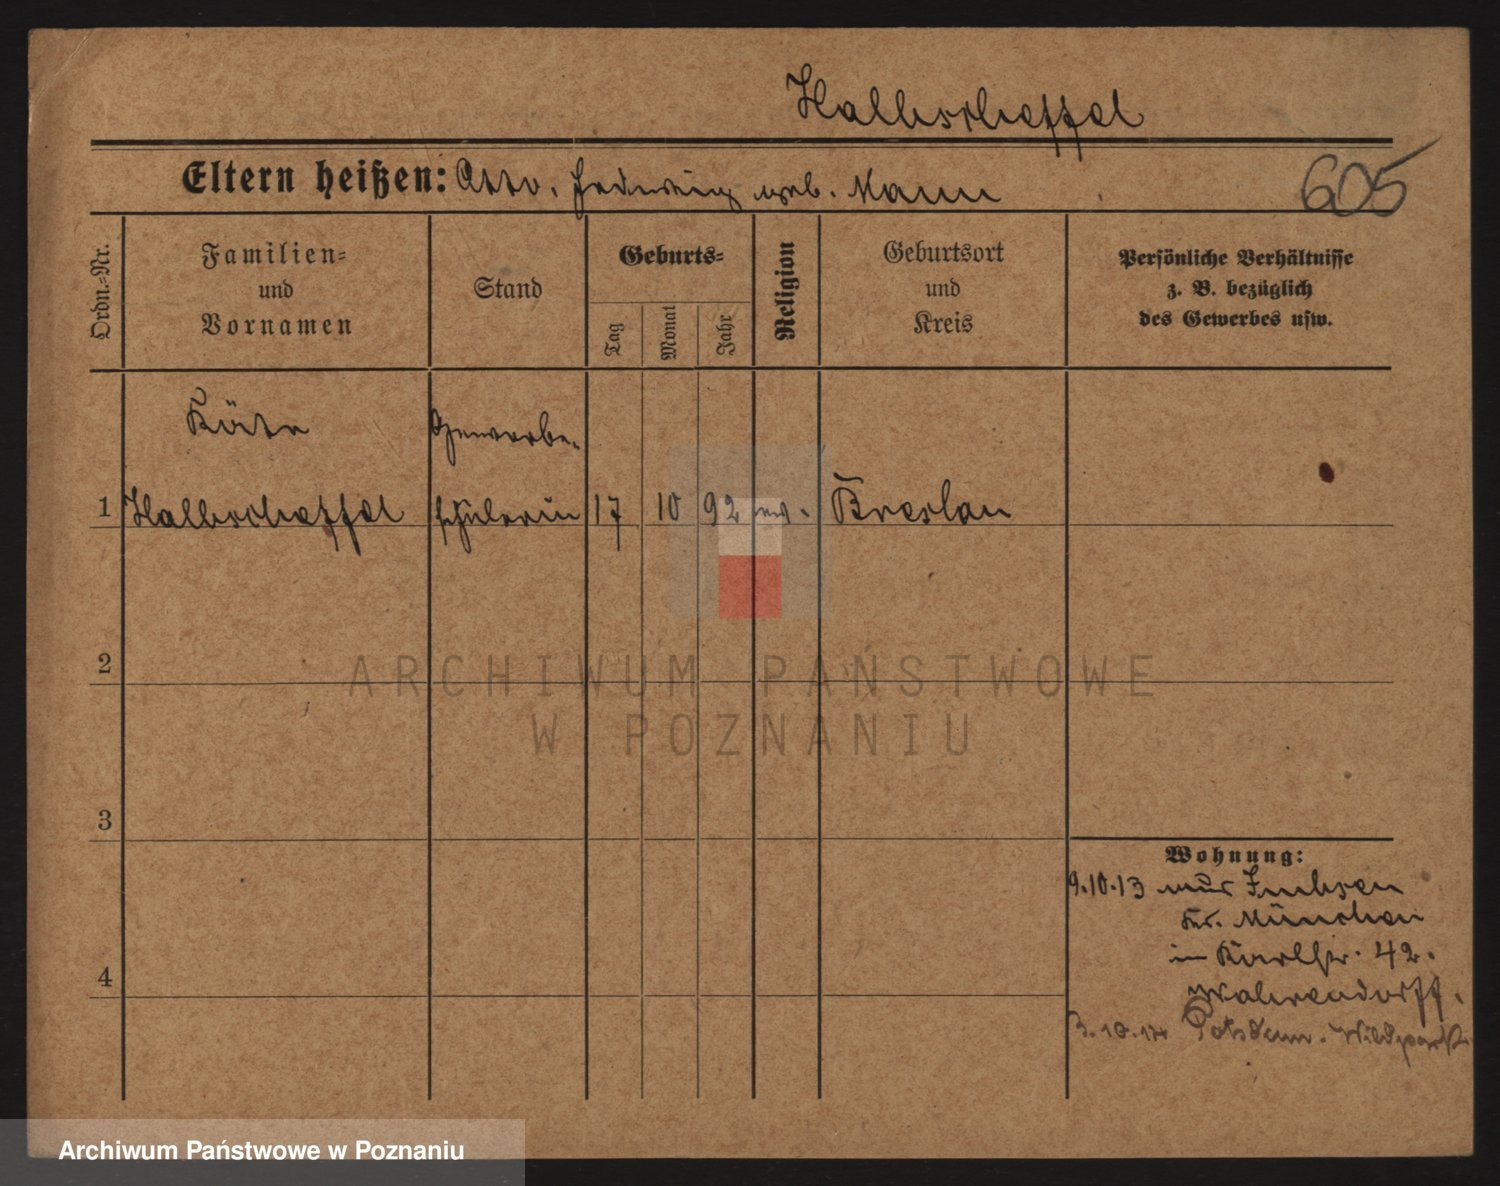 Halbscheffel
Eltern heißen: Otto, Hedwig geb. Mann
605
Ordn.-Nr.
Familien-
und
Vornamen
Stand
Geburts-
Tag
Monat
Jahr
Religion
Geburtsort
und
Kreis
Persönliche Verhältnisse
z. B. bezüglich
des Gewerbes usw.
Käte
Gewerbe-
1 Halbscheffel schülerin 17 10 92 ev. Breslau
2
3
4
Wohnung:
9.10.13
Kr. München
in Karlstr. 42.
Wahrendorff.
3.10.14 Potsdam. Wildpark
ARCHIWUM PAŃSTWOWE
W POZNANIU
Archiwum Państwowe w Poznaniu